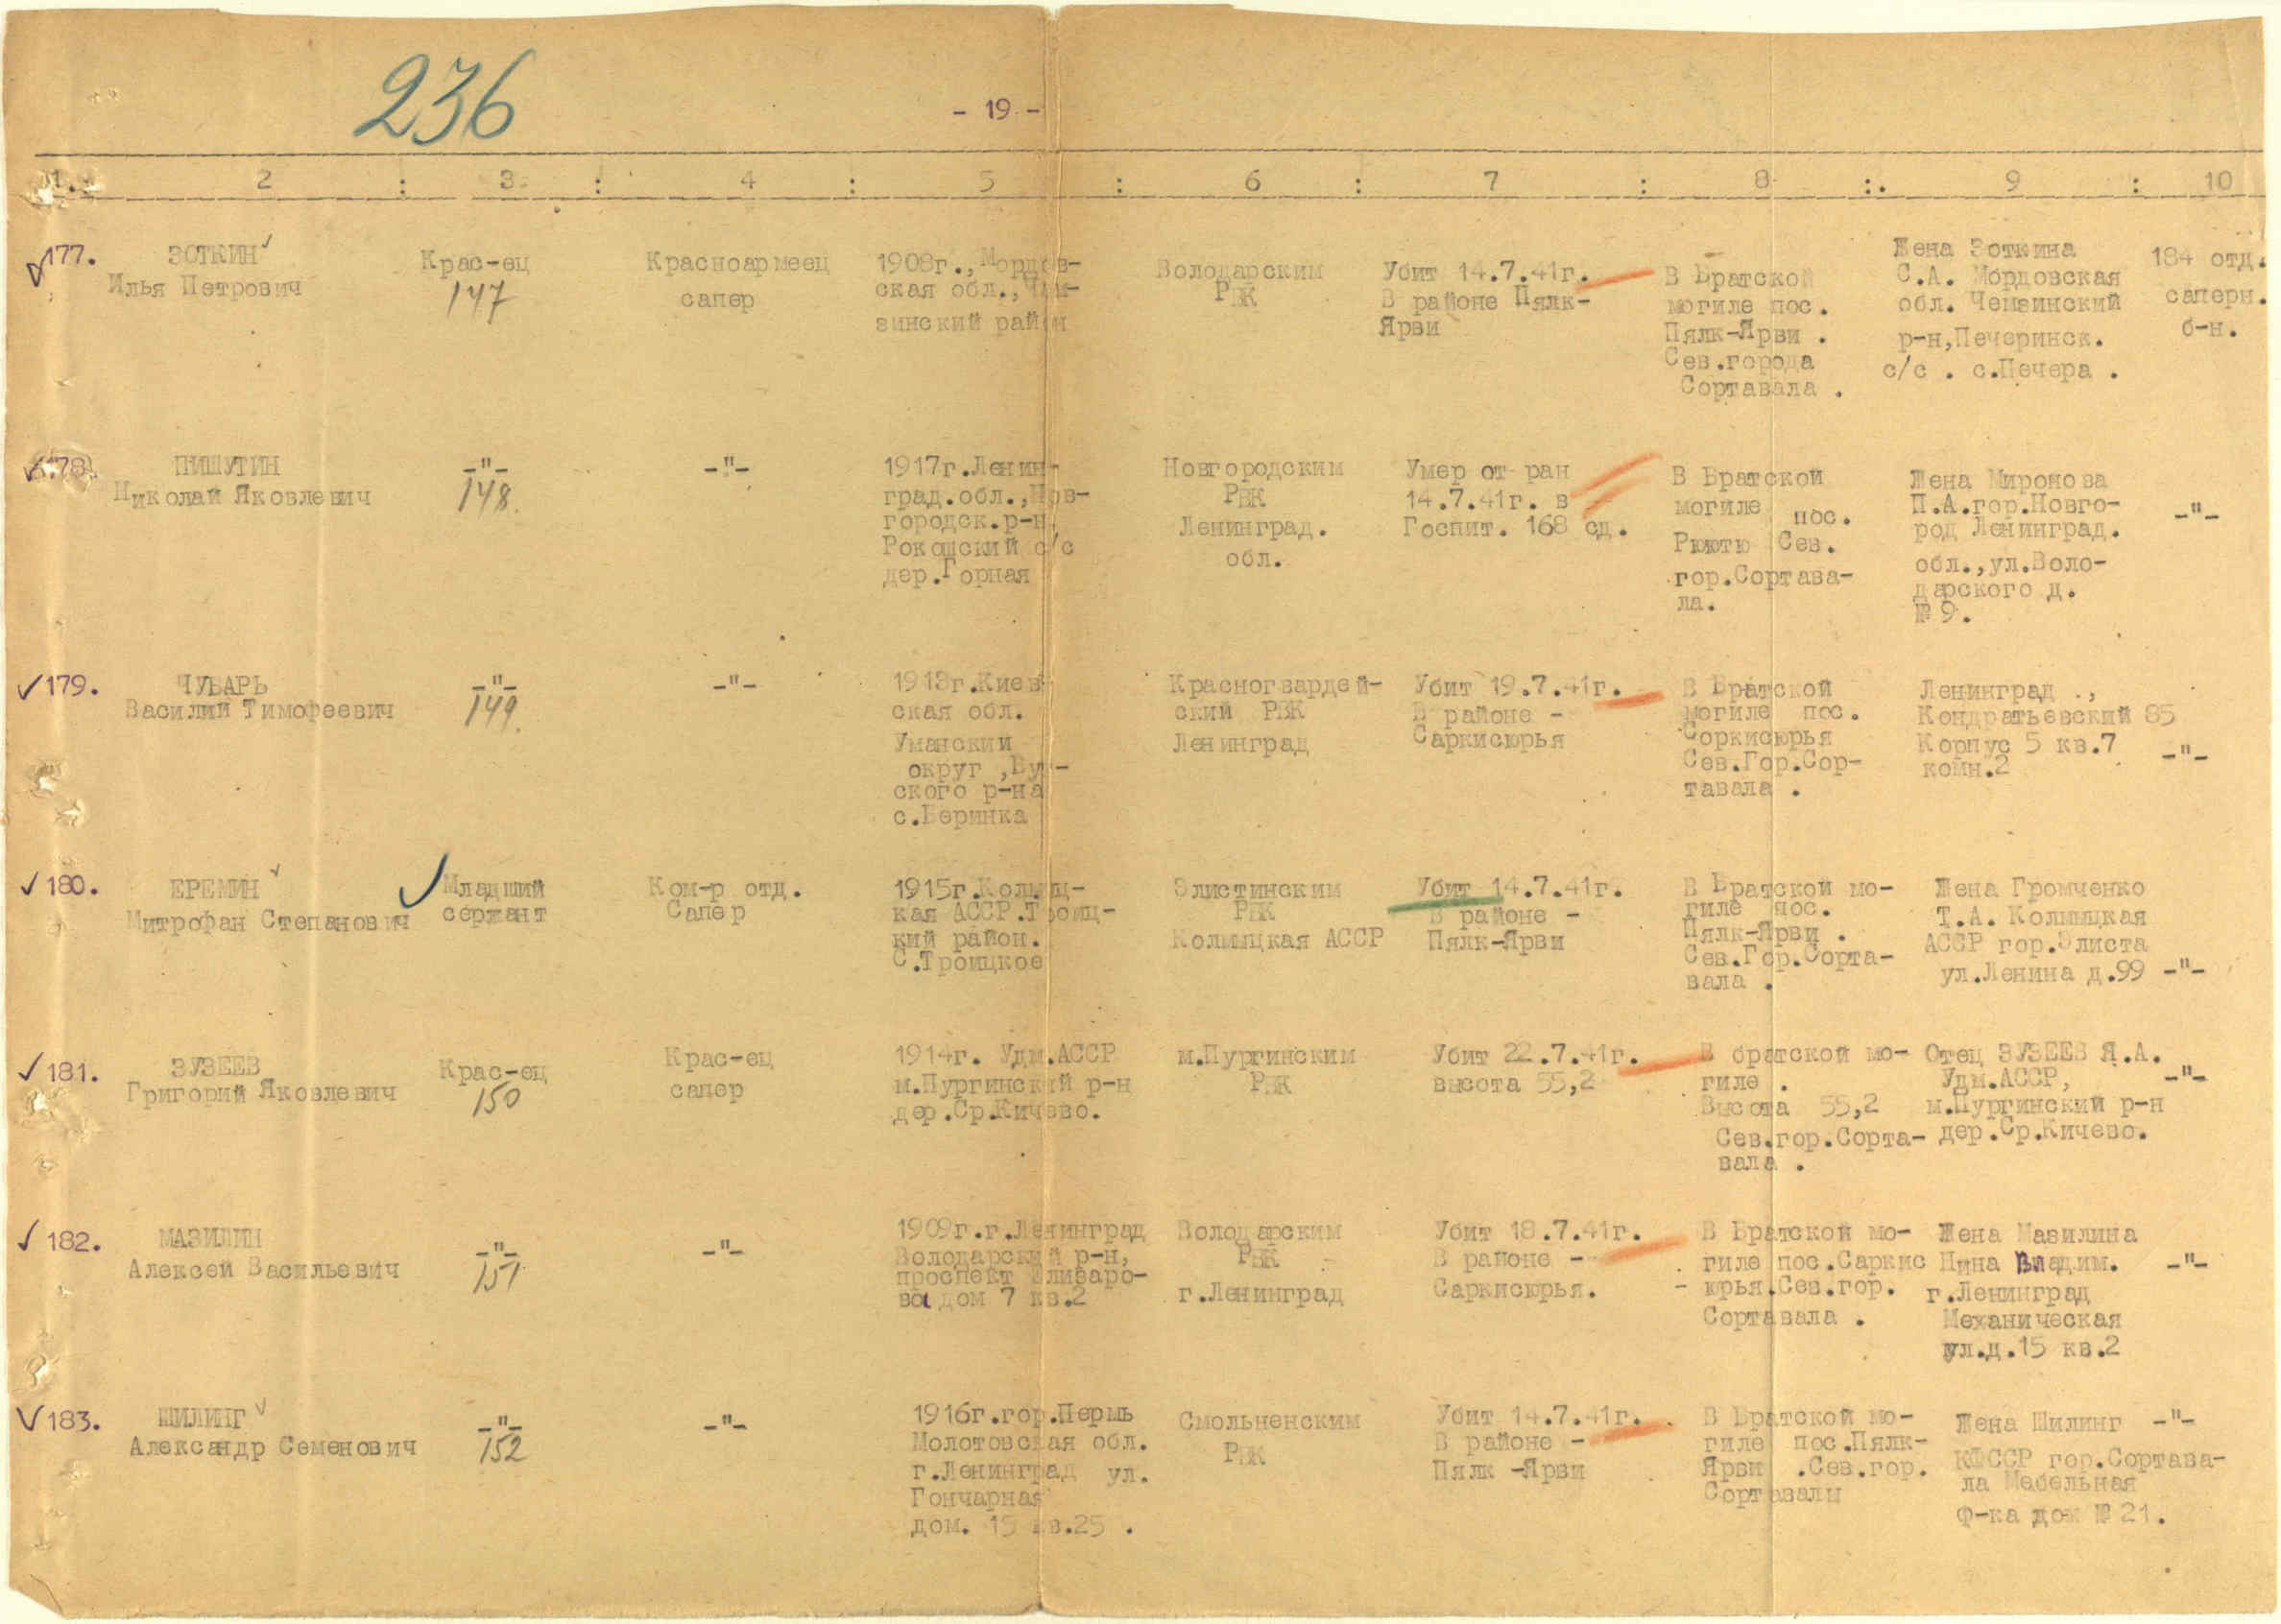 236
- 19 -
1. : 2 : 3 : 4 : 5 : 6 : 7 : 8 : 9 : 10
177.
ЗОТКИН
Илья Петрович
Крас-ец
147
Красноармеец
сапер
1908г., Мордов-
ская обл., Чам-
зинский район
Володарским
РВК
Убит 14.7.41г.
В районе Пялк-
Ярви
В Братской
могиле пос.
Пялк-Ярви .
Сев.города
Сортавала .
Жена Зоткина
С.А. Мордовская
обл. Чемзинский
р-н,Печеринск.
с/с . с.Печера .
184 отд.
саперн.
б-н.
178.
ПИШУТИН
Николай Яковлевич
-"-
148.
-"-
1917г.Ленин-
град.обл.,Нов-
городск.р-н
Рокошский с/с
дер.Горная
Новгородским
РВК
Ленинград.
обл.
Умер от ран
14.7.41г. в
Госпит. 168 сд.
В Братской
могиле пос.
Рюютю Сев.
гор.Сортава-
ла.
Жена Миронова
П.А.гор.Новго-
род Ленинград.
обл.,ул.Воло-
дарского д.
№ 9.
-"-
179.
ЧУБАРЬ
Василий Тимофеевич
-"-
149.
-"-
1913г.Киев-
ская обл.
Уманский
округ ,Бук-
ского р-на
с.Беринка
Красногвардей-
ский РВК
Ленинград
Убит 19.7.41г.
В районе -
Саркисюрья
В Братской
могиле пос.
Соркисюрья
Сев.Гор.Сор-
тавала .
Ленинград .,
Кондратьевский 85
Корпус 5 кв.7
комн.2
-"-
180.
ЕРЕМИН
Митрофан Степанович
Младший
сержант
Ком-р отд.
Сапер
1915г.Колмыц-
кая АССР.Троиц-
кий район.
С.Троицкое
Элистинским
РВК
Колмыцкая АССР
Убит 14.7.41г.
В районе -
Пялк-Ярви
В Братской мо-
гиле пос.
Пялк-Ярви .
Сев.Гор.Сорта-
вала .
Жена Громченко
Т.А. Колмыцкая
АССР гор.Элиста
ул.Ленина д.99
-"-
181.
ЗУЗЕЕВ
Григорий Яковлевич
Крас-ец
150
Крас-ец
сапер
1914г. Удм.АССР
м.Пургинский р-н
дер.Ср.Кичево.
м.Пургинским
РВК
Убит 22.7.41г.
высота 55,2
В братской мо-
гиле .
Высота 55,2
Сев.гор.Сорта-
вала .
Отец ЗУЗЕЕВ Я.А.
Удм.АССР,
м.Пургинский р-н
дер.Ср.Кичево.
-"-
182.
МАЗИЛИН
Алексей Васильевич
-"-
151
-"-
1909г.г.Ленинград
Володарский р-н,
проспект Елизаро-
ва дом 7 кв.2
Володарским
РВК
г.Ленинград
Убит 18.7.41г.
В районе -
Саркисюрья.
В Братской мо-
гиле пос.Саркис
- юрья.Сев.гор.
Сортавала .
Жена Мазилина
Нина Владим.
г.Ленинград
Механическая
ул.д.15 кв.2
-"-
183.
ШИЛИНГ
Александр Семенович
-"-
152
-"-
1916г.гор.Пермь
Молотовская обл.
г.Ленинград ул.
Гончарная
дом. 15 кв.25 .
Смольненским
РВК
Убит 14.7.41г.
В районе -
Пялк -Ярви
В Братской мо-
гиле пос.Пялк-
Ярви .Сев.гор.
Сортавалы
Жена Шилинг
КФССР гор.Сортава-
ла Мебельная
ф-ка дом № 21.
-"-